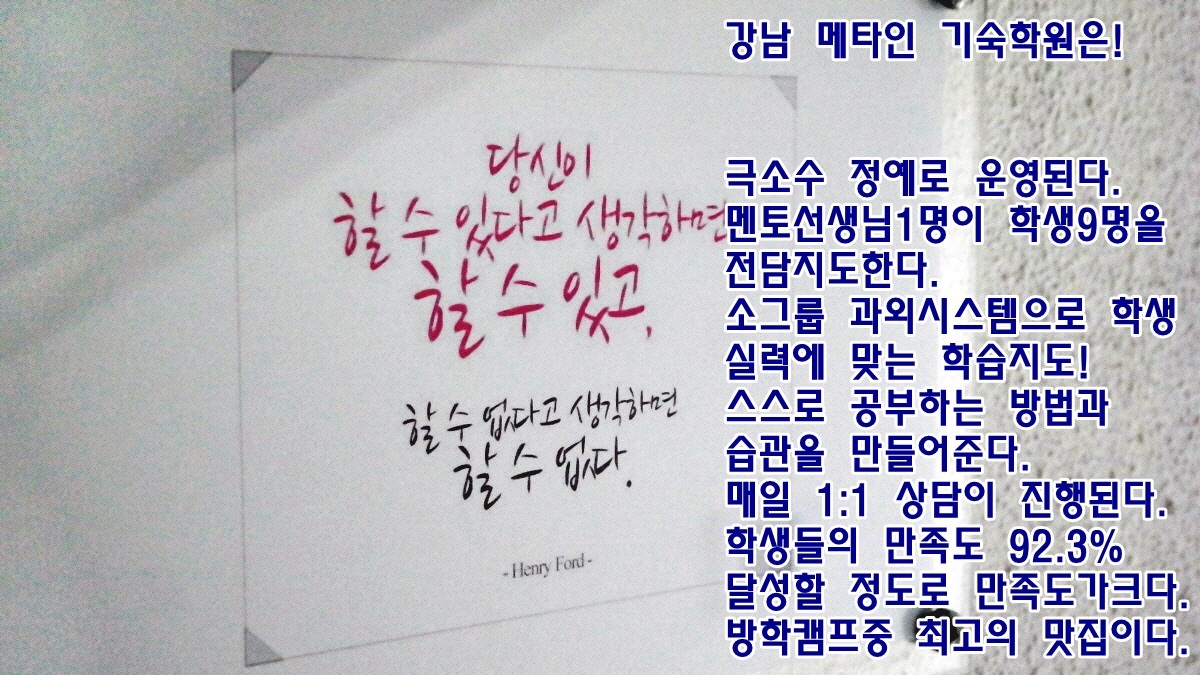 당신이
할 수 있다고 생각하면
할 수 있고,
할 수 없다고 생각하면
할 수 없다.
- Henry Ford -
강남 메타인 기숙학원은!
극소수 정예로 운영된다.
멘토선생님1명이 학생9명을
전담지도한다.
소그룹 과외시스템으로 학생
실력에 맞는 학습지도!
스스로 공부하는 방법과
습관을 만들어준다.
매일 1:1 상담이 진행된다.
학생들의 만족도 92.3%
달성할 정도로 만족도가크다.
방학캠프중 최고의 맛집이다.